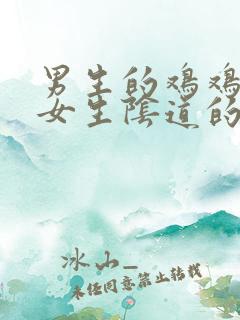 男生的鸡鸡
女生陰道的
冰山_
未经同意禁止转载